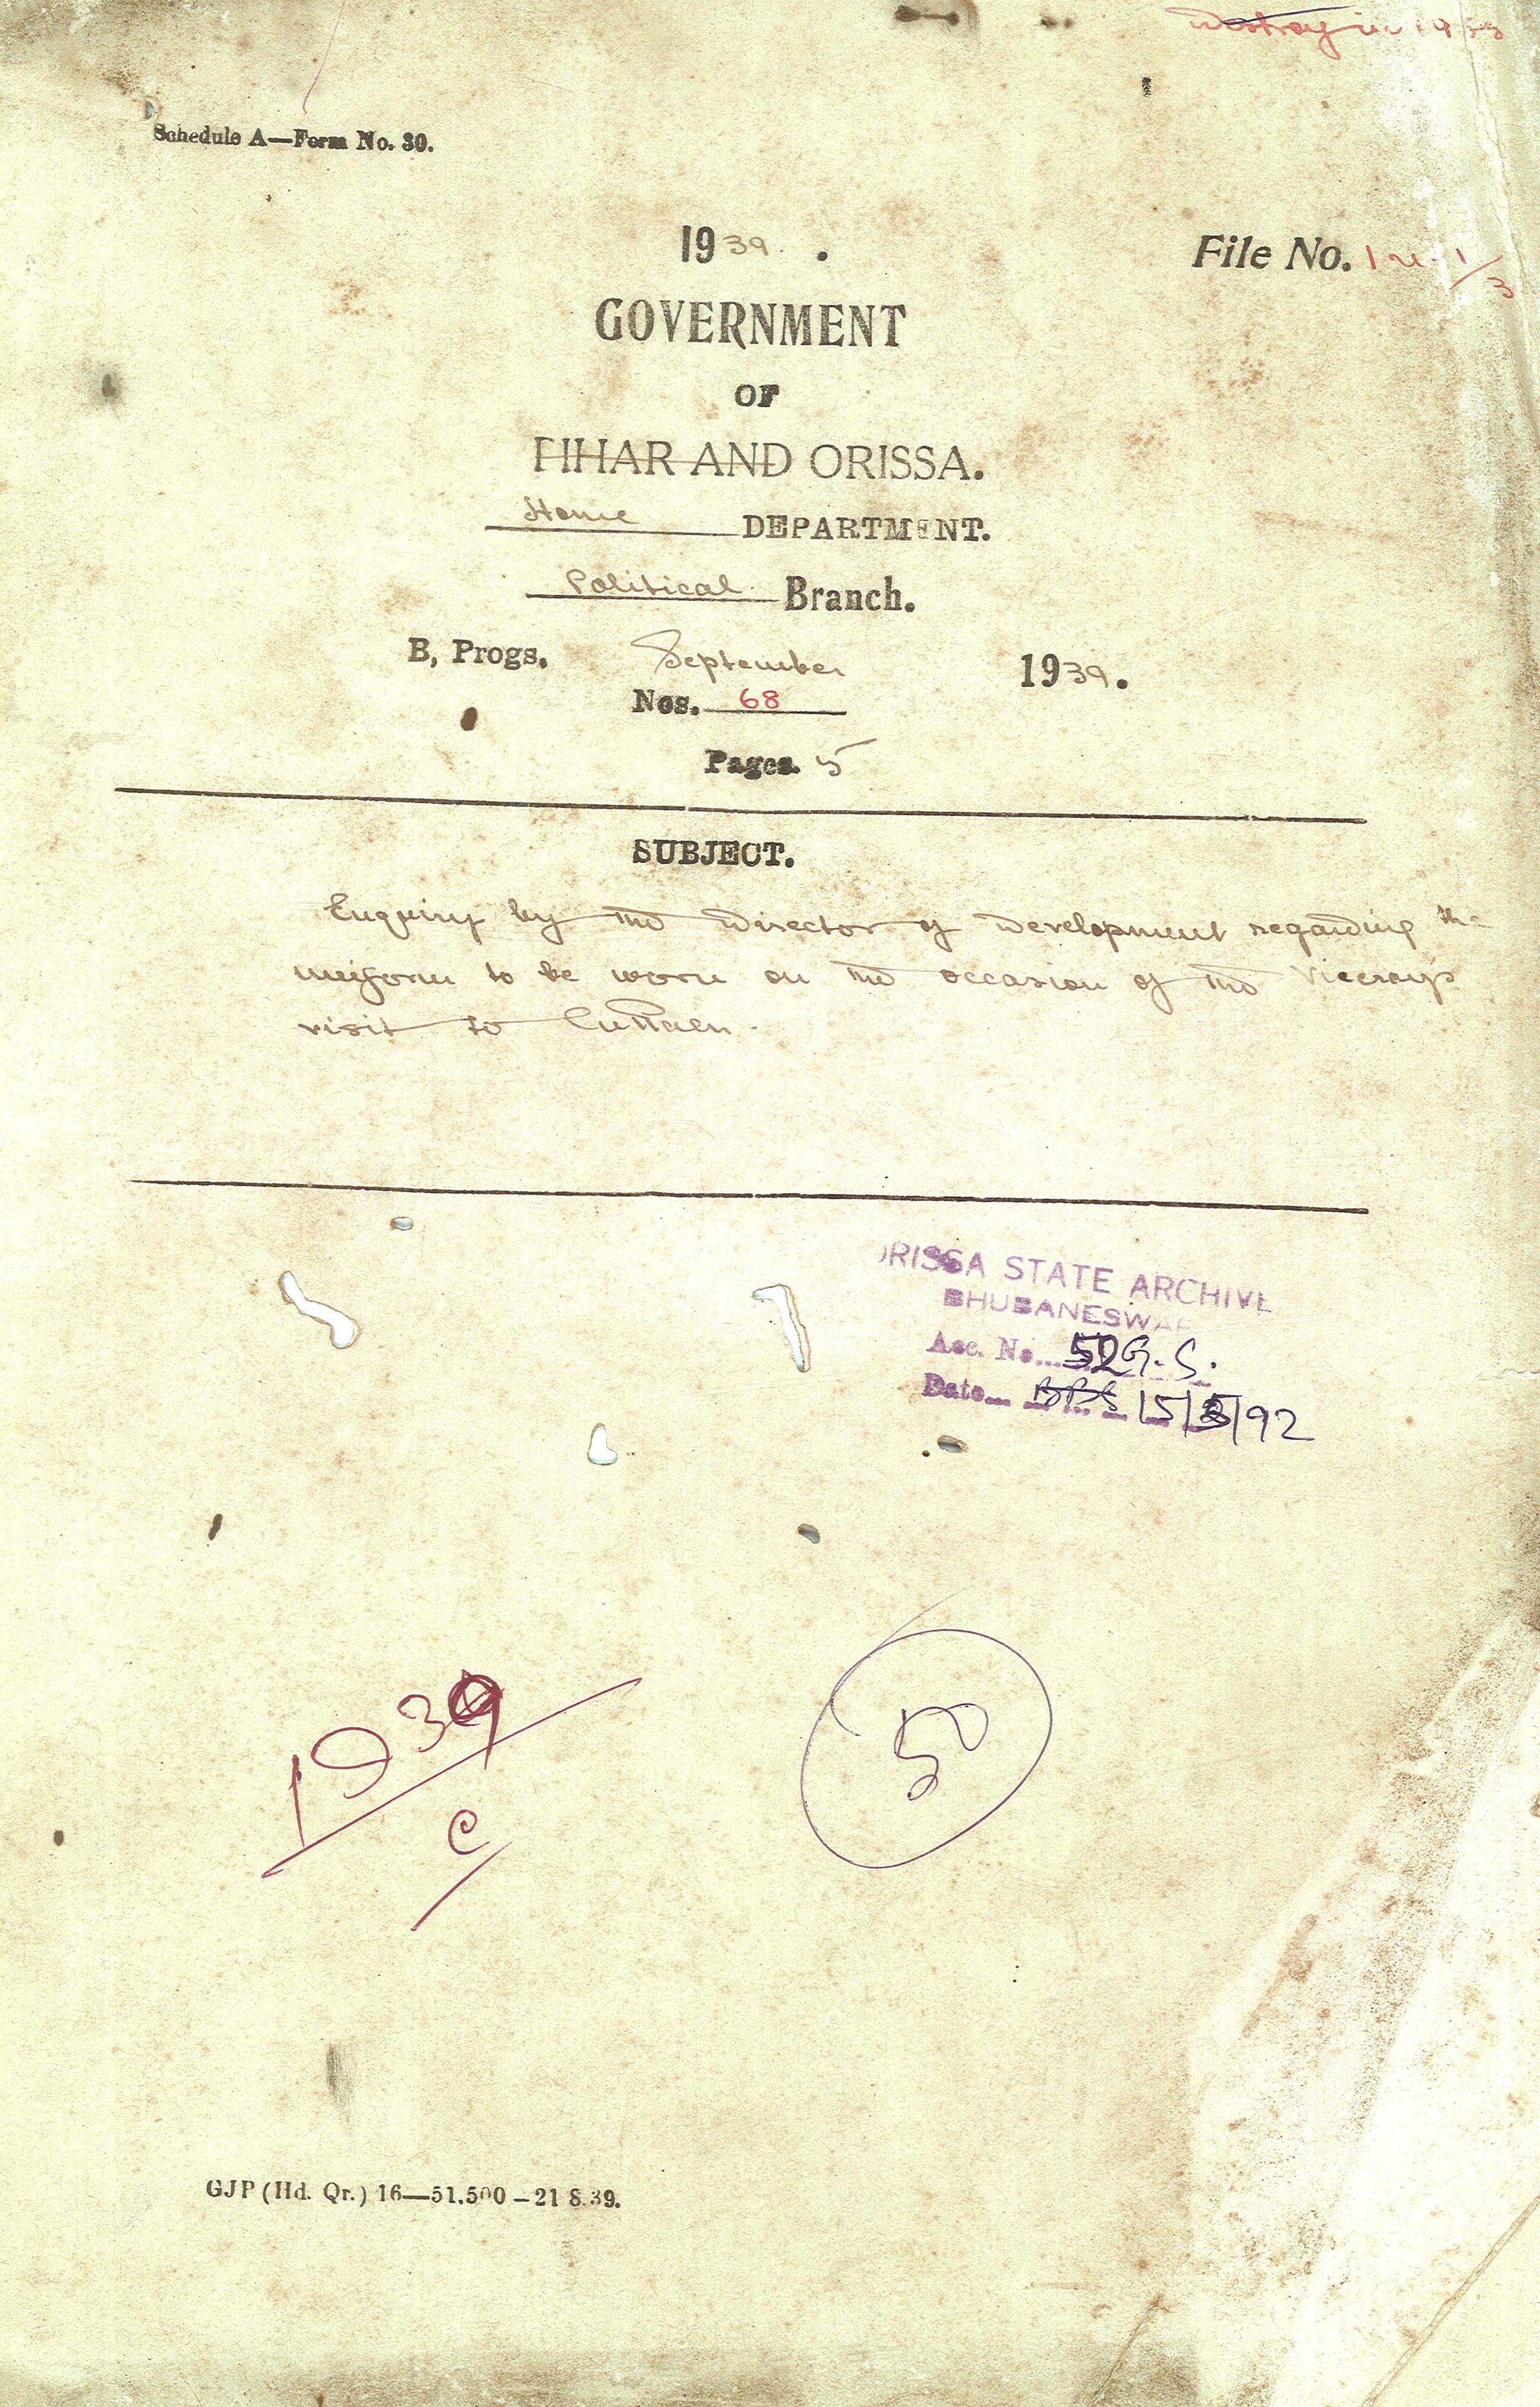 Destroy in 19
Schedule A—Form No. 30.
1939.
File No.
GOVERNMENT
OF
BIHAR AND ORISSA.
Home DEPARTMENT.
Political Branch.
B, Progs. September 1939.
Nos. 68
Pages. 5
SUBJECT.
Enquiry by the Director of Development regarding the
uniform to be worn on the occasion of the Viceroy's
visit to Cuttack.
ORISSA STATE ARCHIVE
BHUBANESWAR
Acc. No... 52 G.S.
Date... 15/ /92
1939
C
50
GJP (Hd. Qr.) 16—51,500—21.8.39.